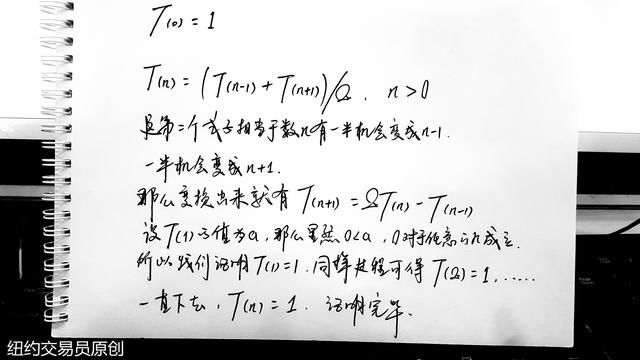 T(0) = 1
T(n) = (T(n-1) + T(n+1))/2. n > 0
是第二个式子相当于数n有一半机会变成n-1.
一半机会变成n+1.
那么变换出来就有 T(n+1) = 2T(n) - T(n-1)
设T(1)的值为a, 那么显然0<a, 0对于任意的n成立.
所以我们证明T(1)=1. 同样过程可得 T(2)=1, ......
一直下去, T(n) = 1. 证明完毕.
纽约交易员原创